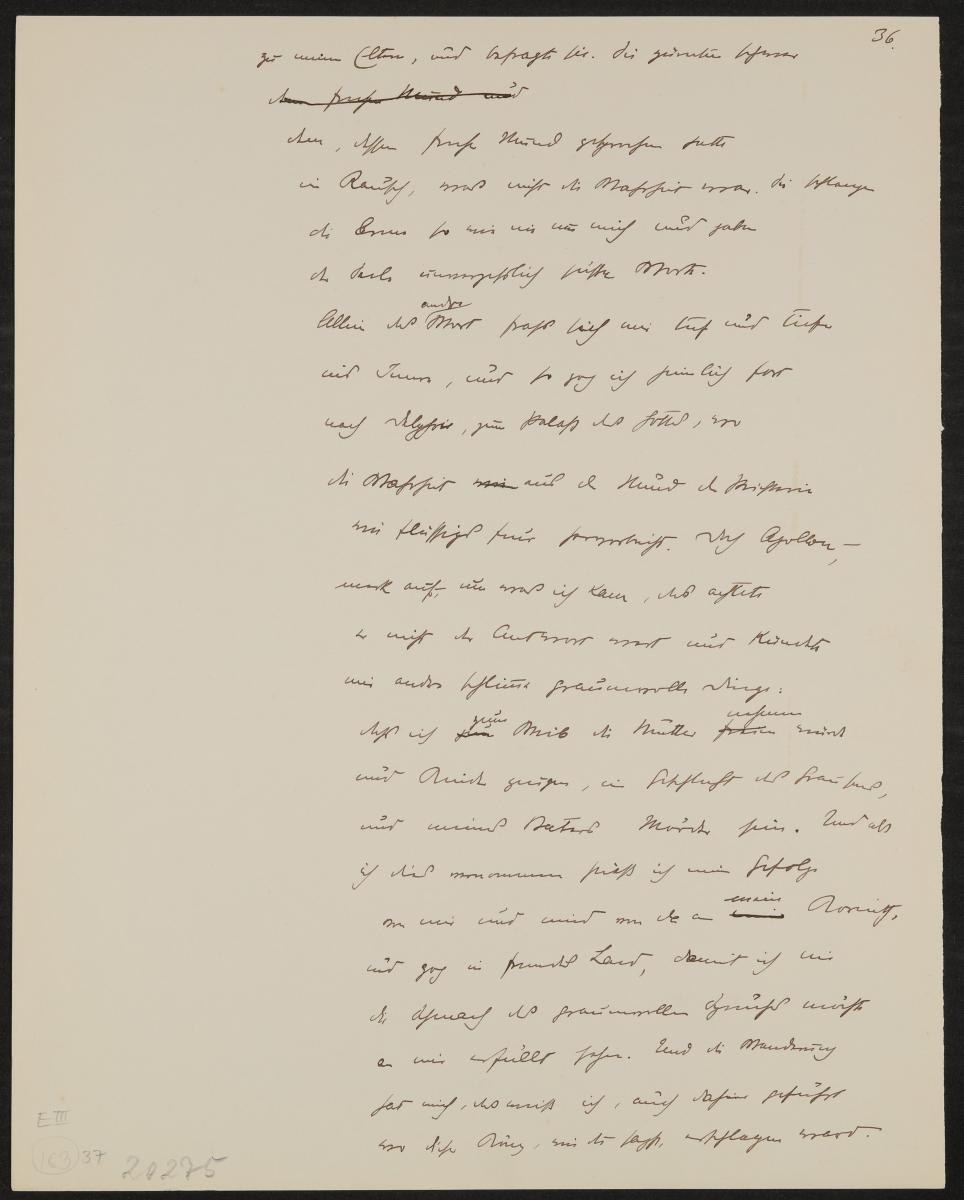 36.
zu meinen Eltern, und befragte sie. Sie zürnten schwer
dem freche Mund und
dem, dessen frecher Mund gesprochen hatte
im Rausch, was nicht die Wahrheit war. Sie schlangen
die Arme so wie nie um mich und gaben
der Seele unvergeßlich süße Worte.
Allein das andre Wort fraß sich mir tief und tiefer
ins Innre, und so zog ich heimlich fort
nach Delphi, zum Palast des Gottes, wo
die Wahrheit aus dem Mund der Priesterin
wie flüssiges Feuer hervorbricht. Doch Apollon, –
merk auf, um was ich kam, das achtete
er nicht der Antwort wert und kündete
mir andre schlimme grauenvolle Dinge:
daß ich zum Weib die Mutter nehmen würde
und Kinder zeugen, ein Geschlecht des Grausens,
und meines Vaters Mörder sein. Und als
ich dies vernommen hieß ich mein Gefolge
von mir und mied von da an mein Korinth,
und zog in fremdes Land, damit ich nie
die Schmach des grauenvollen Spruchs möchte
an mir erfüllt sehen. Und die Wanderung
hat mich, das weiß ich, auch dahin geführt
wo dieser König, wie du sagst, erschlagen ward.
E III
163 37 20275